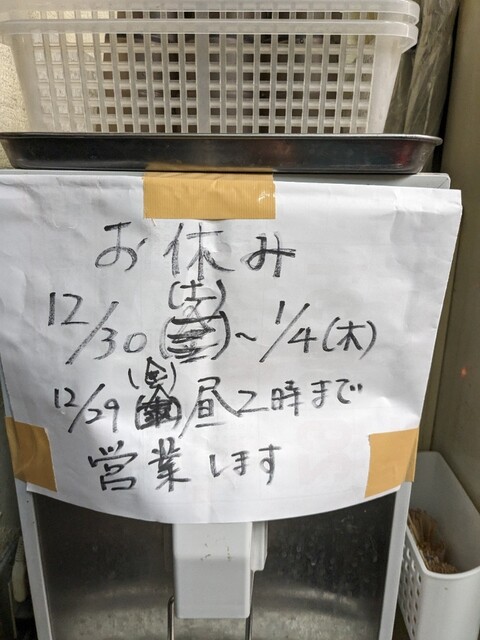 お休み
12/30(土)~1/4(木)
12/29(金)昼2時まで
営業します